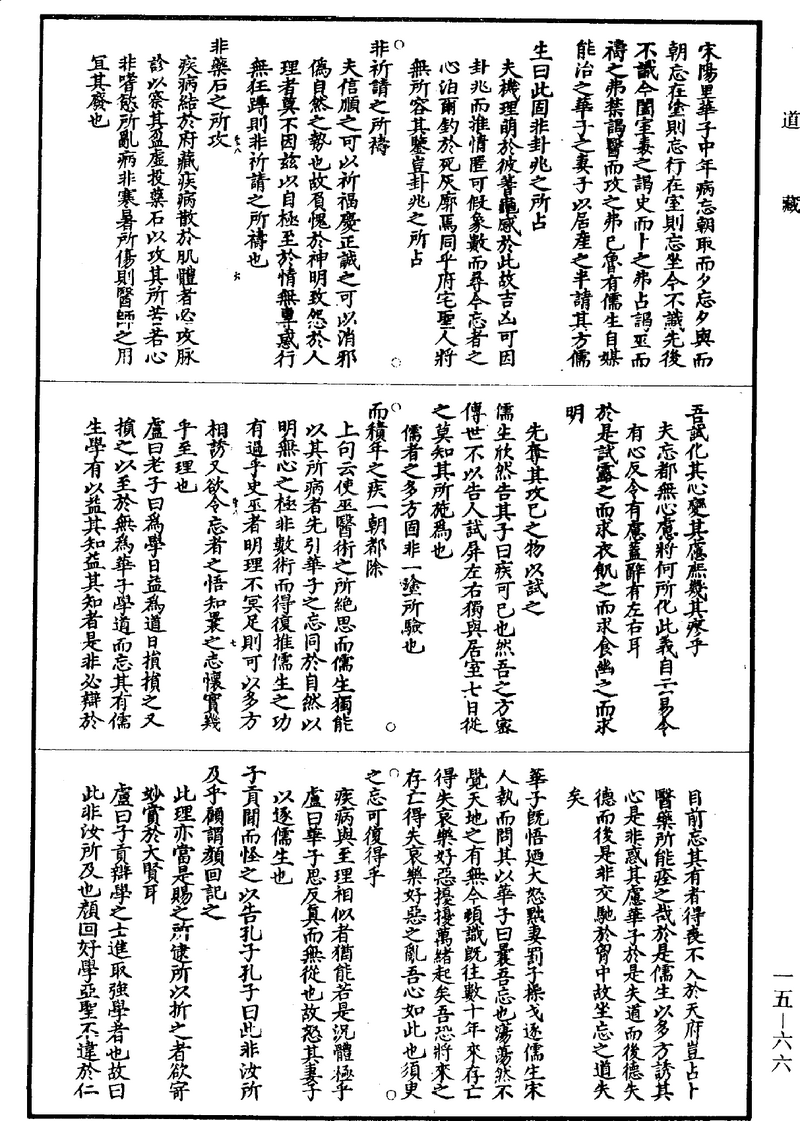 道藏
宋陽里華子中年病忘朝取而夕忘夕與而
朝忘在塗則忘行在室則忘坐今不識先後
不識今闔室毒之謁史而卜之弗占謁巫而
禱之弗禁謁醫而攻之弗已魯有儒生自媒
能治之華子之妻子以居產之半請其方儒
生曰此固非卦兆之所占
夫機理萌於彼蓍龜感於此故吉凶可因
卦兆而推情匿可假象數而尋今忘者之
心泊爾鈞於死灰廓焉同乎府宅聖人將
無所容其鑒豈卦兆之所占
非祈請之所禱
夫信順之可以祈福慶正誠之可以消邪
偽自然之勢也故負愧於神明致怨於人
理者莫不因茲以自極至於情無專惑行
無狂躊則非祈請之所禱也
非藥石之所攻
疾病結於府藏疾病散於肌體者必攻脉
診以察其盈虛投藥石以攻其所苦若心
非嗜慾所亂病非寒暑所傷則醫師之用
宜其廢也
吾試化其心變其慮庶幾其瘳乎
夫忘都無心慮將何所化此義自云易令
有心反令有慮蓋辭有左右耳
於是試露之而求衣飢之而求食幽之而求
明
先奪其攻已之物以試之
儒生欣然告其子曰疾可已也然吾之方密
傳世不以告人試屏左右獨與居室七日從
之莫知其所施為也
儒者之多方固非一塗所驗也
而積年之疾一朝都除
上句云使巫醫術之所絕思而儒生獨能
以其所病者先引華子之忘同於自然以
明無心之極非數術而得復推儒生之功
有過乎史巫者明理不冥足則可以多方
相誘又欲令忘者之悟知曩之忘懷實幾
乎至理也
盧曰老子曰為學日益為道日損損之又
損之以至於無為華子學道而忘其有儒
生學有以益其知益其知者是非必辯於
目前忘其有者得喪不入於天府豈占卜
醫藥所能痊之哉於是儒生以多方誘其
心是非惑其慮華子於是失道而後德失
德而後是非交馳於胷中故坐忘之道失
矣
華子既悟廼大怒黜妻罰子操戈逐儒生宋
人執而問其以華子曰曩吾忘也蕩蕩然不
覺天地之有無今頓識既往數十年來存亡
得失哀樂好惡擾擾萬緒起矣吾恐將來之
存亡得失哀樂好惡之亂吾心如此也須臾
之忘可復得乎
疾病與至理相似者猶能若是況體極乎
盧曰華子思反真而無從也故怒其妻子
以逐儒生也
子貢聞而怪之以告孔子孔子曰此非汝所
及乎顧謂顏回記之
此理亦當是賜之所逮所以抑之者欲寄
妙賞於大賢耳
盧曰子貢辯學之士進取強學者也故曰
此非汝所及也顏回好學亞聖不違於仁
一五—六六